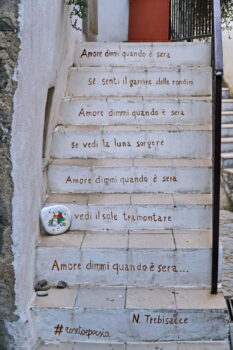 Amore dimmi quando è sera
se senti il garrire delle rondini
Amore dimmi quando è sera
se vedi la luna sorgere
Amore dimmi quando è sera
vedi il sole tramontare
Amore dimmi quando è sera...
N. Trebisacce